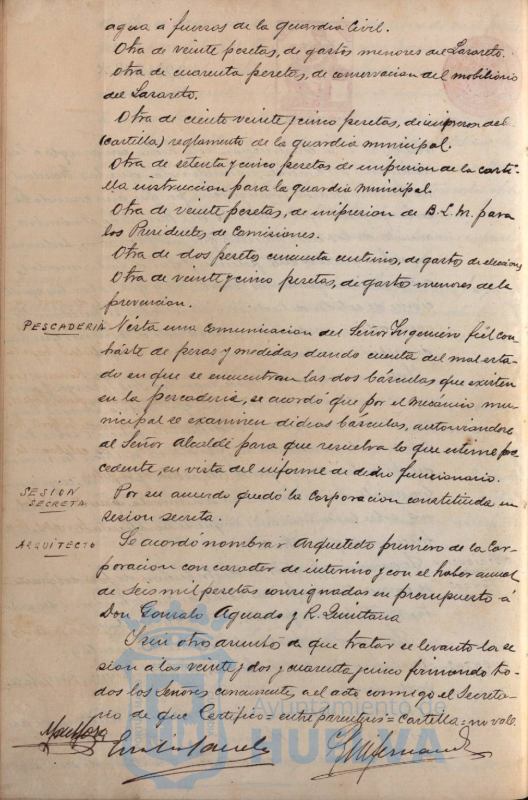 agua á fuerzas de la guardia Civil.
Otra de veinte pesetas, de gastos menores del Lazareto.
Otra de cuarenta pesetas, de conservacion del mobiliario
del Lazareto.
Otra de ciento veinte y cinco pesetas, de impresion de
(cartilla) reglamento de la guardia municipal.
Otra de setenta y cinco pesetas de impresion de la carti-
lla instruccion para la guardia municipal.
Otra de veinte pesetas, de impresion de B. L. M. para
los Presidentes de Comisiones.
Otra de dos pesetas cincuenta centimos, de gastos de elecciones
Otra de veinte y cinco pesetas, de gastos menores de la
prevencion.
PESCADERIA Vista una comunicacion del Señor Ingeniero fiel con-
traste de pesas y medidas dando cuenta del mal esta-
do en que se encuentran las dos básculas que existen
en la pescaderia, se acordó que por el mecánico mu-
nicipal se examinen dichas básculas, autorizandose
al Señor Alcalde para que resuelva lo que estime pro-
cedente, en vista del informe de dicho funcionario.
SESION SECRETA Por su acuerdo quedó la Corporacion constituida en
sesion secreta.
ARQUITECTO Se acordó nombrar Arquitecto primero de la Cor-
poracion con caracter de interino y con el haber anual
de Seis mil pesetas consignadas en presupuesto á
Don Gonzalo Aguado y R. Quintana
Y sin otro asunto de que tratar se levanto la se-
sion a las veinte y dos y cuarenta y cinco firmando to-
dos los Señores concurrentes al acto conmigo el Secreta-
rio de que Certifico = entre parentesis = cartilla = no vale.
Ayuntamiento de
HUELVA